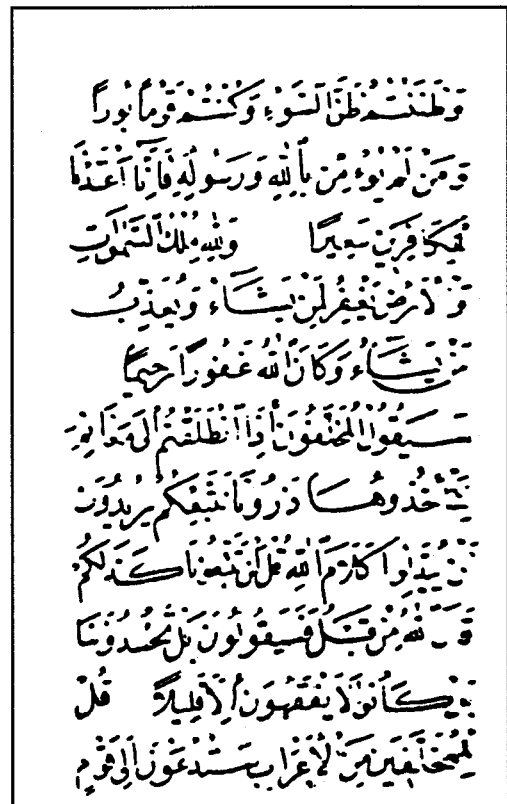 وَظَنَنْتُمْ ظَنَّ السَّوْءِ وَكُنْتُمْ قَوْمًا بُورًا
وَمَنْ لَمْ يُؤْمِنْ بِاللّٰهِ وَرَسُولِهِ فَإِنَّا أَعْتَدْنَا
لِلْكَافِرِينَ سَعِيرًا وَلِلّٰهِ مُلْكُ السَّمٰوَاتِ
وَالْأَرْضِ يَغْفِرُ لِمَنْ يَشَاءُ وَيُعَذِّبُ
مَنْ يَشَاءُ وَكَانَ اللّٰهُ غَفُورًا رَحِيمًا
سَيَقُولُ الْمُخَلَّفُونَ إِذَا انْطَلَقْتُمْ إِلَى مَغَانِمَ
لِتَأْخُذُوهَا ذَرُونَا نَتَّبِعْكُمْ يُرِيدُونَ
أَنْ يُبَدِّلُوا كَلَامَ اللّٰهِ قُلْ لَنْ تَتَّبِعُونَا كَذٰلِكُمْ
قَالَ اللّٰهُ مِنْ قَبْلُ فَسَيَقُولُونَ بَلْ تَحْسُدُونَنَا
بَلْ كَانُوا لَا يَفْقَهُونَ إِلَّا قَلِيلًا قُلْ
لِلْمُخَلَّفِينَ مِنَ الْأَعْرَابِ سَتُدْعَوْنَ إِلَى قَوْمٍ